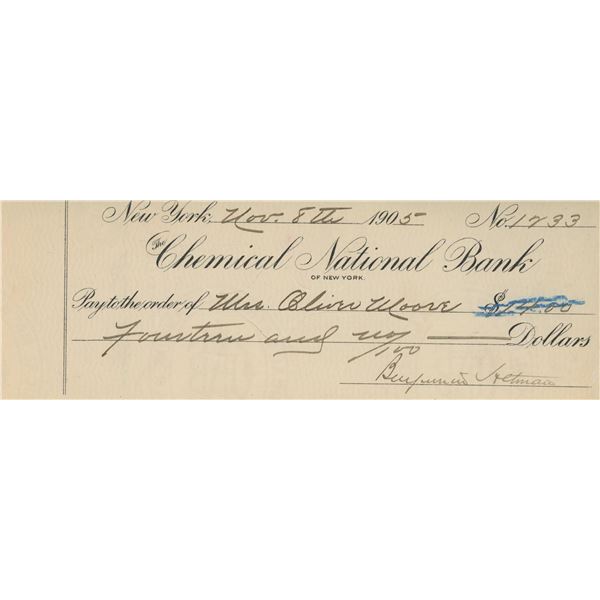 New York, Nov. 8th 1905 No. 1233
The Chemical National Bank
OF NEW YORK.
Pay to the order of Mrs. Oliver Moore $14.00
Fourteen and no/100 Dollars
Benjamin Altman